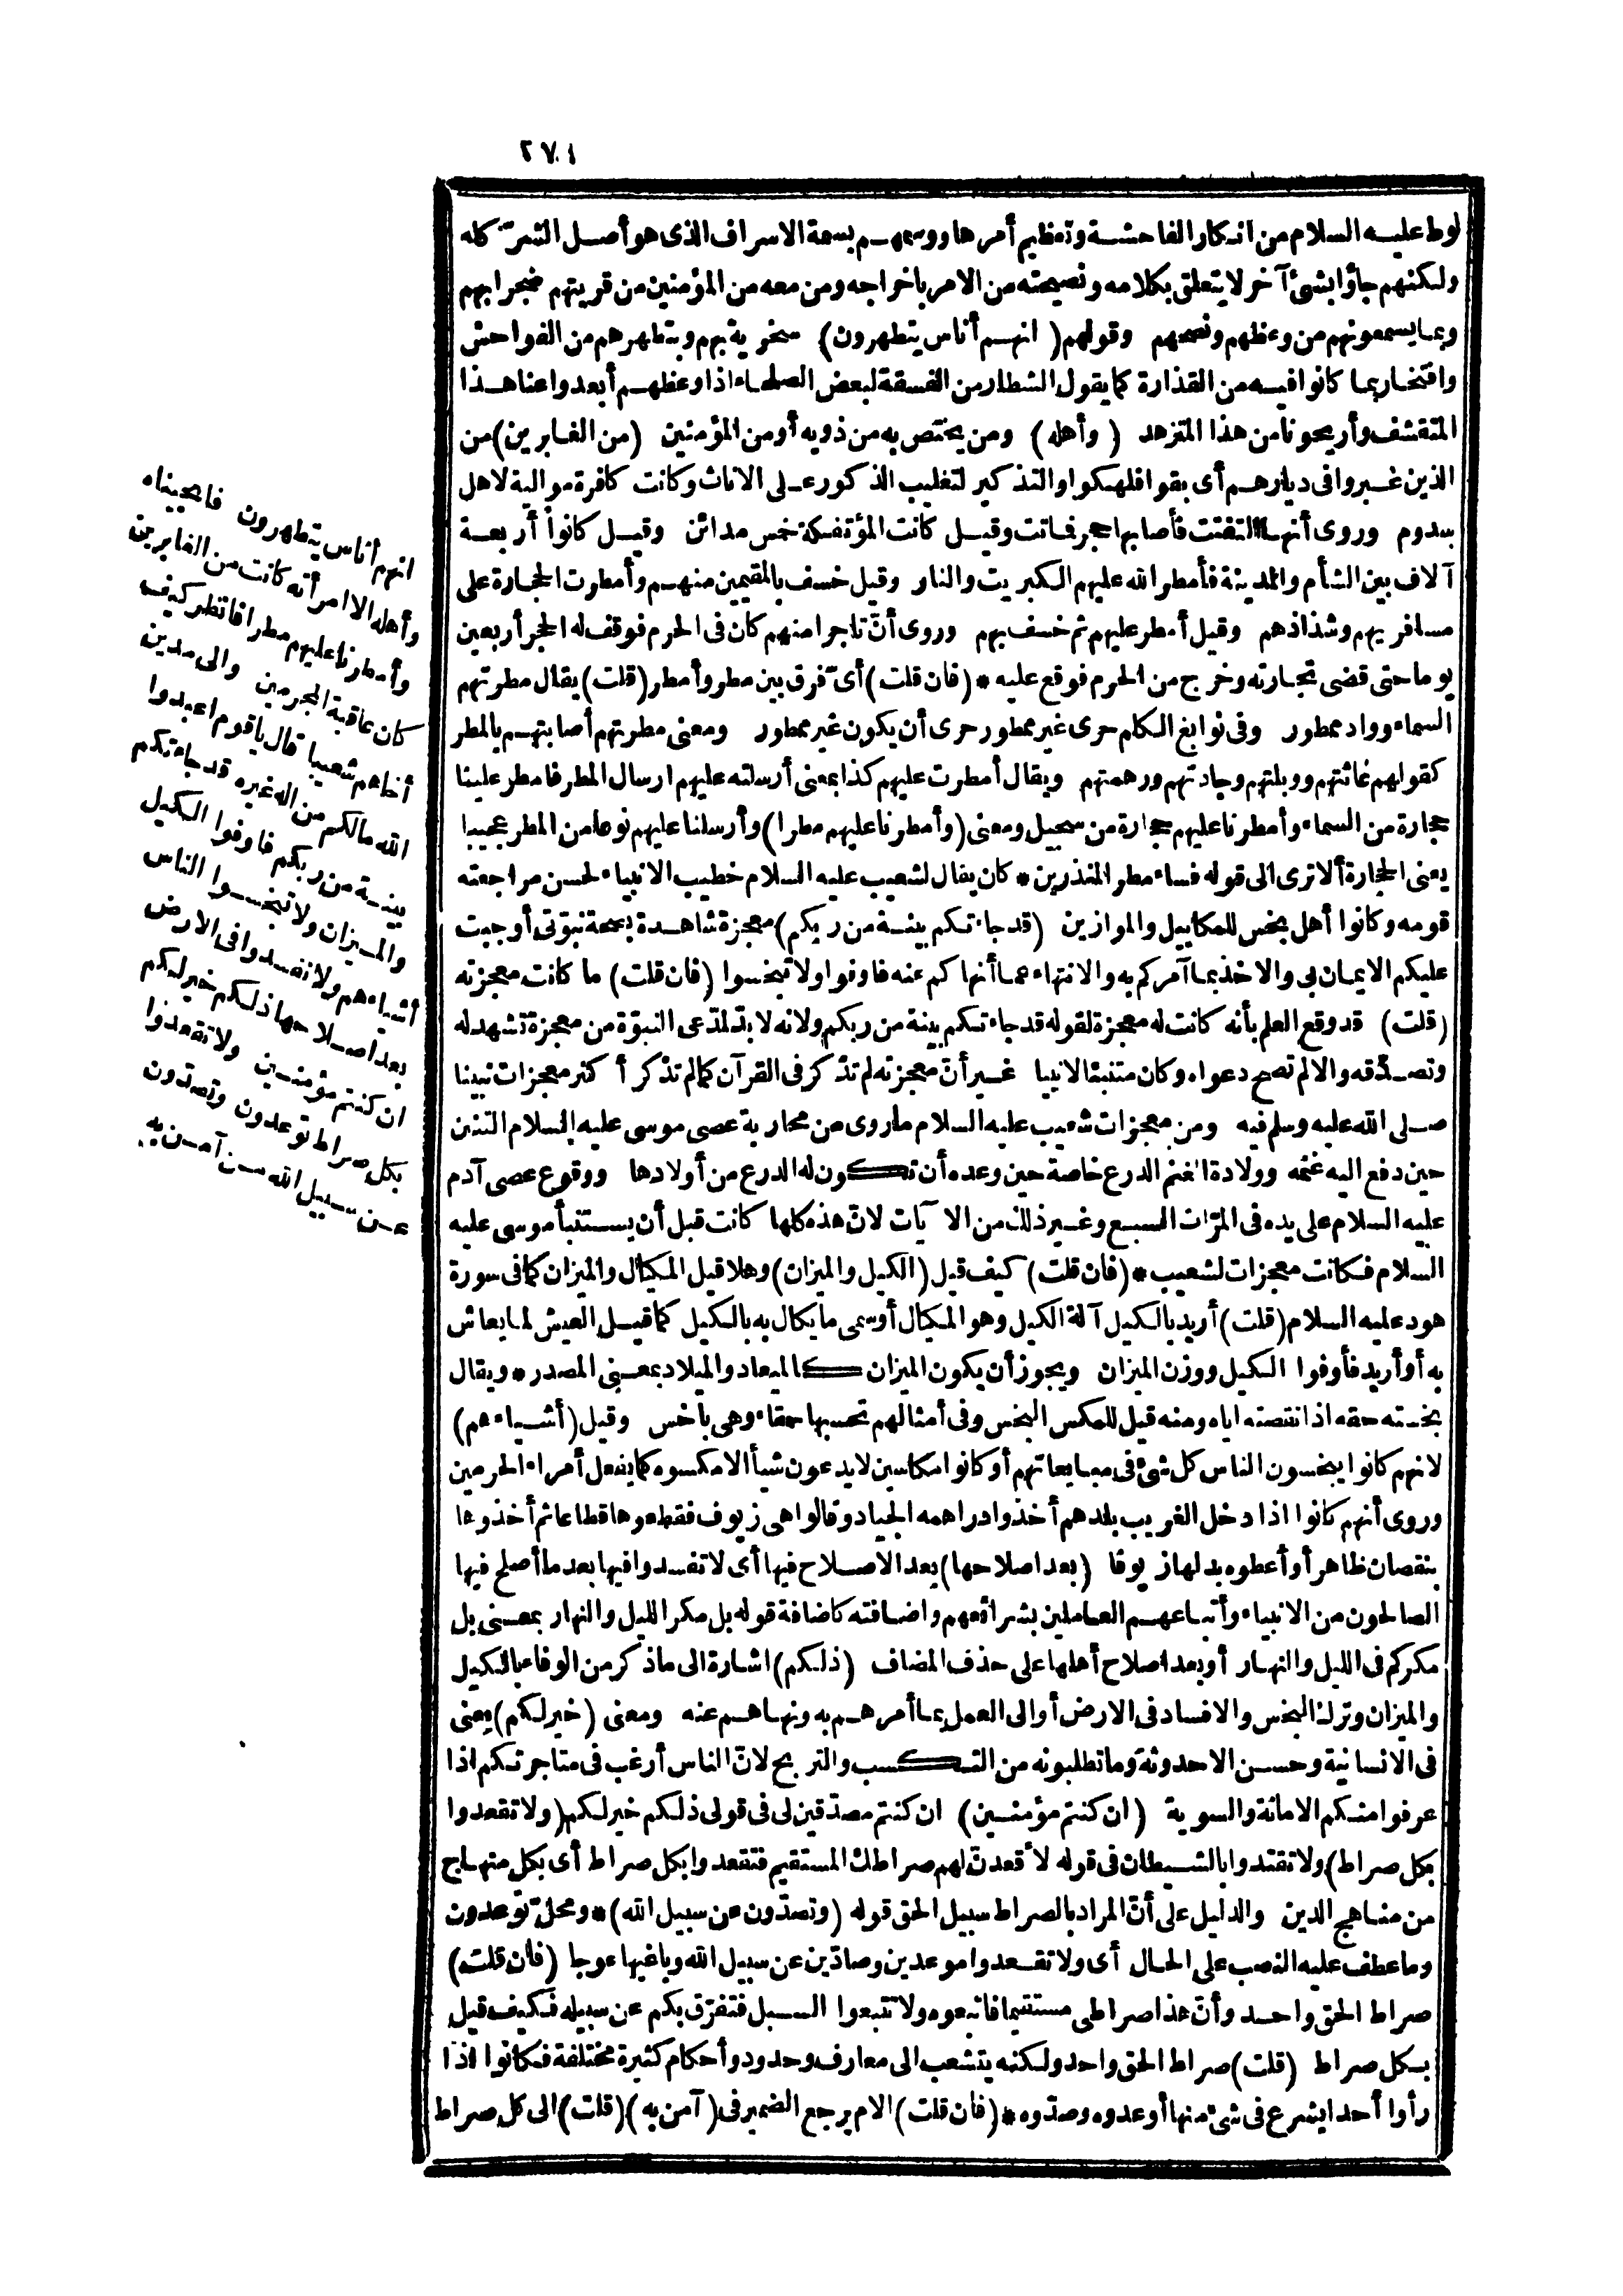 ٢٧١
لوط عليه السلام من انكار الفاحشة وتعظيم أمرها ووسمهم بسمة الاسراف الذى هو أصل الشرّ كله
ولكنهم جاؤا بشئ آخر لا يتعلق بكلامه ونصيحته من الامر باخراجه ومن معه من المؤمنين من قريتهم ضجرا بهم
وبما يسمعونهم من وعظهم ونصحهم وقولهم (انهم أناس يتطهرون) سخرية بهم وبتطهرهم من الفواحش
وافتخار بما كانوا فيه من القذارة كما يقول الشطار من الفسقة لبعض الصلحاء اذا وعظهم أبعدوا عنا هذا
المتقشف وأريحونا من هذا المتزهد (وأهله) ومن يختص به من ذويه أو من المؤمنين (من الغابرين) من
الذين غبروا فى ديارهم أى بقوا فهلكوا والتذكير لتغليب الذكور على الاناث وكانت كافرة موالية لاهل
سدوم وروى أنها التفتت فأصابها حجر فماتت وقيل كانت المؤتفكة خمس مدائن وقيل كانوا أربعة
آلاف بين الشأم والمدينة فأمطر الله عليهم الكبريت والنار وقيل خسف بالمقيمين منهم وأمطرت الحجارة على
مسافريهم وشذاذهم وقيل أمطر عليهم ثم خسف بهم وروى أنّ تاجرا منهم كان فى الحرم فوقف له الحجر أربعين
يوما حتى قضى تجارته وخرج من الحرم فوقع عليه * (فان قلت) أىّ فرق بين مطر وأمطر (قلت) يقال مطرتهم
السماء وواد ممطور وفى نوابغ الكلم حرى غير ممطور حرى أن يكون غير ممطور ومعنى مطرتهم أصابتهم بالمطر
كقولهم غاثتهم ووبلتهم وجادتهم ورهمتهم ويقال أمطرت عليهم كذا بمعنى أرسلته عليهم ارسال المطر فامطر علينا
حجارة من السماء وأمطرنا عليهم حجارة من سجيل ومعنى (وأمطرنا عليهم مطرا) وأرسلنا عليهم نوعا من المطر عجيبا
يعنى الحجارة ألا ترى الى قوله فساء مطر المنذرين * كان يقال لشعيب عليه السلام خطيب الانبياء لحسن مراجعته
قومه وكانوا أهل بخس للمكاييل والموازين (قد جاءتكم بينة من ربكم) معجزة شاهدة بصحة نبوّتى أوجبت
عليكم الايمان بى والاخذ بما آمركم به والانتهاء عما أنهاكم عنه فاوفوا ولا تبخسوا (فان قلت) ما كانت معجزته
(قلت) قد وقع العلم بأنه كانت له معجزة لقوله قد جاءتكم بينة من ربكم ولانه لا بدّ لمدّعى النبوّة من معجزة تشهد له
وتصدّقه والا لم تصح دعواه وكان متنبئا لا نبيا غير أنّ معجزته لم تذكر فى القرآن كما لم تذكر أكثر معجزات نبينا
صلى الله عليه وسلم فيه ومن معجزات شعيب عليه السلام ما روى من محاربة عصى موسى عليه السلام التنين
حين دفع اليه غنمه وولادة الغنم الدرع خاصة حين وعده أن تكون له الدرع من أولادها ووقوع عصى آدم
عليه السلام على يده فى المرّات السبع وغير ذلك من الآيات لانّ هذه كلها كانت قبل أن يستنبأ موسى عليه
السلام فكانت معجزات لشعيب * (فان قلت) كيف قيل (الكيل والميزان) وهلا قيل المكيال والميزان كما فى سورة
هود عليه السلام (قلت) أريد بالكيل آلة الكيل وهو المكيال أو سمى ما يكال به بالكيل كما قيل العيش لما يعاش
به أو أريد فأوفوا الكيل ووزن الميزان ويجوز أن يكون الميزان كالميعاد والميلاد بمعنى المصدر * ويقال
بخسته حقه اذا نقصته اياه ومنه قيل للمكس البخس وفى أمثالهم تحسبها حمقاء وهى باخس وقيل (أشياءهم)
لانهم كانوا يبخسون الناس كل شئ فى مبايعاتهم أو كانوا مكاسين لا يدعون شيأ الا مكسوه كما يفعل أمراء الحرمين
وروى أنهم كانوا اذا دخل الغريب بلدهم أخذوا دراهمه الجياد وقالوا هى زيوف فقطعوها قطاعا ثم أخذوها
بنقصان ظاهر أو أعطوه بدلها زيوفا (بعد اصلاحها) بعد الاصلاح فيها أى لا تفسدوا فيها بعد ما أصلح فيها
الصالحون من الانبياء وأتباعهم العاملين بشرائعهم واضافته كاضافة قوله بل مكر الليل والنهار بمعنى بل
مكركم فى الليل والنهار أو بعد اصلاح أهلها على حذف المضاف (ذلكم) اشارة الى ما ذكر من الوفاء بالكيل
والميزان وترك البخس والافساد فى الارض أو الى العمل بما أمرهم به ونهاهم عنه ومعنى (خير لكم) يعنى
فى الانسانية وحسن الاحدوثة وما تطلبونه من التكسب والتربح لانّ الناس أرغب فى متاجرتكم اذا
عرفوا منكم الامانة والسوية (ان كنتم مؤمنين) ان كنتم مصدّقين لى فى قولى ذلكم خير لكم (ولا تقعدوا
بكل صراط) ولا تقتدوا بالشيطان فى قوله لأقعدنّ لهم صراطك المستقيم فتقعدوا بكل صراط أى بكل منهاج
من مناهج الدين والدليل على أنّ المراد بالصراط سبيل الحق قوله (وتصدّون عن سبيل الله) * ومحلّ توعدون
وما عطف عليه النصب على الحال أى ولا تقعدوا موعدين وصادّين عن سبيل الله وباغيها عوجا (فان قلت)
صراط الحق واحد وأنّ هذا صراطى مستقيما فاتبعوه ولا تتبعوا السبل فتفرّق بكم عن سبيله فكيف قيل
بكل صراط (قلت) صراط الحق واحد ولكنه يتشعب الى معارف وحدود وأحكام كثيرة مختلفة فكانوا اذا
رأوا أحدا يشرع فى شئ منها أوعدوه وصدّوه * (فان قلت) الام يرجع الضمير فى (آمن به) (قلت) الى كل صراط
انهم أناس يتطهرون فانجيناه
وأهله الا امرأته كانت من الغابرين
وأمطرنا عليهم مطرا فانظر كيف
كان عاقبة المجرمين والى مدين
أخاهم شعيبا قال ياقوم اعبدوا
الله مالكم من اله غيره قد جاءتكم
بينة من ربكم فاوفوا الكيل
والميزان ولا تبخسوا الناس
أشياءهم ولا تفسدوا فى الارض
بعد اصلاحها ذلكم خير لكم
ان كنتم مؤمنين ولا تقعدوا
بكل صراط توعدون وتصدّون
عن سبيل الله من آمن به